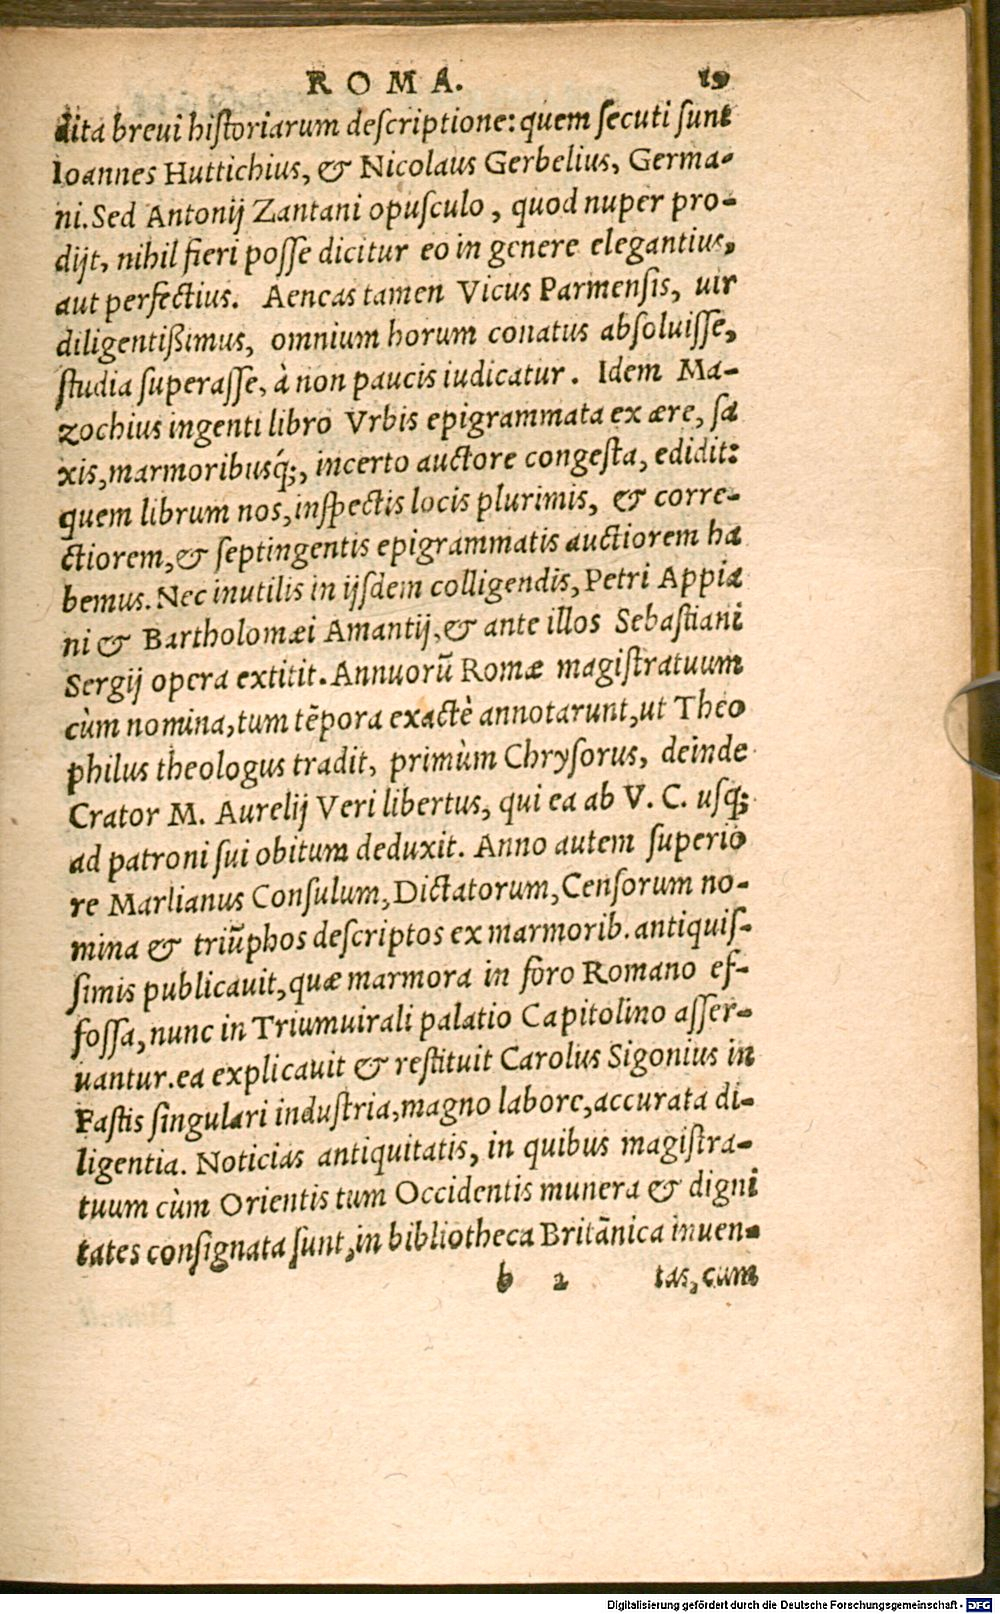 ROMA. 19
dita breui hiſtoriarum deſcriptione: quem ſecuti ſunt
Ioannes Huttichius, & Nicolaus Gerbelius, Germa-
ni. Sed Antonij Zantani opuſculo, quod nuper pro-
dijt, nihil fieri poſſe dicitur eo in genere elegantius,
aut perfectius. Aeneas tamen Vicus Parmenſis, uir
diligentißimus, omnium horum conatus abſoluiſſe,
ſtudia ſuperaſſe, à non paucis iudicatur. Idem Ma-
zochius ingenti libro Vrbis epigrammata ex ære, ſa
xis, marmoribusq́;, incerto auctore congeſta, edidit:
quem librum nos, inſpectis locis plurimis, & corre-
ctiorem, & ſeptingentis epigrammatis auctiorem ha
bemus. Nec inutilis in ijſdem colligendis, Petri Appia
ni & Bartholomæi Amantij, & ante illos Sebaſtiani
Sergij opera extitit. Annuorũ Romæ magiſtratuum
cùm nomina, tum tẽpora exactè annotarunt, ut Theo
philus theologus tradit, primùm Chryſorus, deinde
Crator M. Aurelij Veri libertus, qui ea ab V. C. uſq;
ad patroni ſui obitum deduxit. Anno autem ſuperio
re Marlianus Conſulum, Dictatorum, Cenſorum no-
mina & triũphos deſcriptos ex marmorib. antiquiſ-
ſimis publicauit, quæ marmora in foro Romano ef-
foſſa, nunc in Triumuirali palatio Capitolino aſſer-
uantur. ea explicauit & reſtituit Carolus Sigonius in
Faſtis ſingulari induſtria, magno labore, accurata di-
ligentia. Noticias antiquitatis, in quibus magiſtra-
tuum cùm Orientis tum Occidentis munera & digni
tates conſignata ſunt, in bibliotheca Britãnica inuen-
b 2 tas, cum
Digitalisierung gefördert durch die Deutsche Forschungsgemeinschaft - DFG